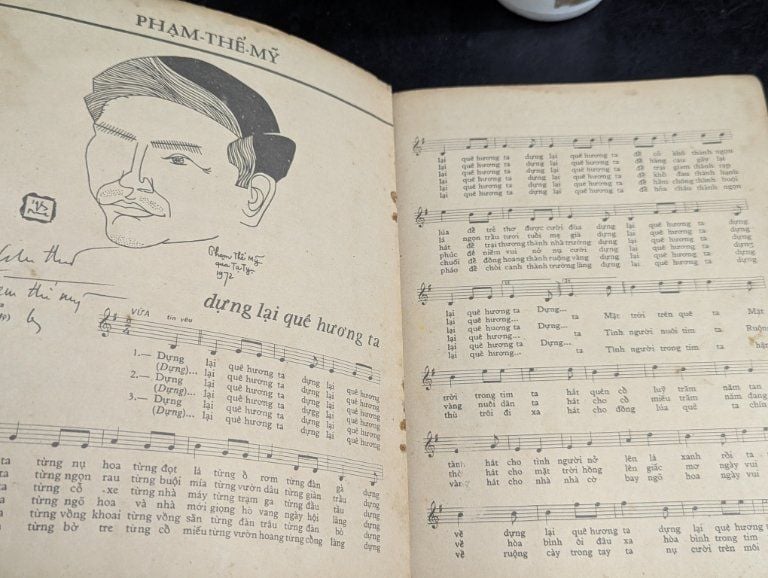 PHẠM-THẾ-MỸ
Phạm Thế Mỹ
qua Tạ Tỵ
1972
dựng lại quê hương ta
VỪA tin yêu
1.— Dựng lại quê hương ta dựng lại quê hương
(Dựng)... lại quê hương ta dựng lại quê hương
2.— Dựng lại quê hương ta dựng lại quê hương
(Dựng)... lại quê hương ta dựng lại quê hương
3.— Dựng lại quê hương ta dựng lại quê hương
(Dựng)... lại quê hương ta dựng lại quê hương
ta từng nụ hoa từng đọt lá từng ổ rơm từng đàn gà dựng
ta từng ngọn rau từng buội mía từng vườn dâu từng giàn trầu dựng
ta từng cỗ .xe từng nhà máy từng trạm ga từng đầu tầu dựng
từng ngõ hoa và nhà mới giọng hò vang ngày hội làng dựng
từng vồng khoai từng vồng sắn từng đàn trâu từng đàn bò dựng
từng bờ tre từng cỗ miếu từng vườn hoang từng cổng làng dựng
lại quê hương ta dựng lại quê hương ta để cỏ khô thành ngọn
lại quê hương ta dựng lại quê hương ta để hàng cau gầy lại
lại quê hương ta dựng lại quê hương ta để trại giam thành rạp
lại quê hương ta dựng lại quê hương ta để khổ đau thành hạnh
lại quê hương ta dựng lại quê hương ta để hầm chông thành buội
lại quê hương ta dựng lại quê hương ta để hỏa châu thành ngọn
lúa để trẻ thơ được cười đùa dựng lại quê hương ta dựng
lá ngon trầu tươi tuổi mẹ già dựng lại quê hương ta dựng
hát để trại thương thành nhà trường dựng lại quê hương ta dựng
phúc để niềm vui nở nụ cười dựng lại quê hương ta dựng
chuối để đồng hoang thành ruộng vàng dựng lại quê hương ta dựng
pháo để chòi canh thành trường làng dựng lại quê hương ta dựng
lại quê hương ta Dựng...
lại quê hương... ta Mặt trời trên quê ta Mặt
lại quê hương ta Dựng...
lại quê hương... ta Tình người nuôi tim ta Ruộng
lại quê hương ta Dựng...
lại quê hương... ta Tình người trong tim ta
trời trong tim ta hát quên cỗ luỹ trăm năm tan
vàng nuôi dân ta hát cho cỗ miếu trăm năm đang
thù trôi đi xa hát cho đồng lúa quê ta chín
hát cho tình người nở lên lá xanh rồi ta
hát cho mặt trời hồng lên giấc mơ ngày vui
hát cho nhà nhà cờ bay ngõ hoa ngày vui
về dựng lại quê hương ta dựng lại quê hương ta
về hòa bình ôi đâu xa hòa bình trong tim
về ruộng cày trong tay ta nụ cười trên môi